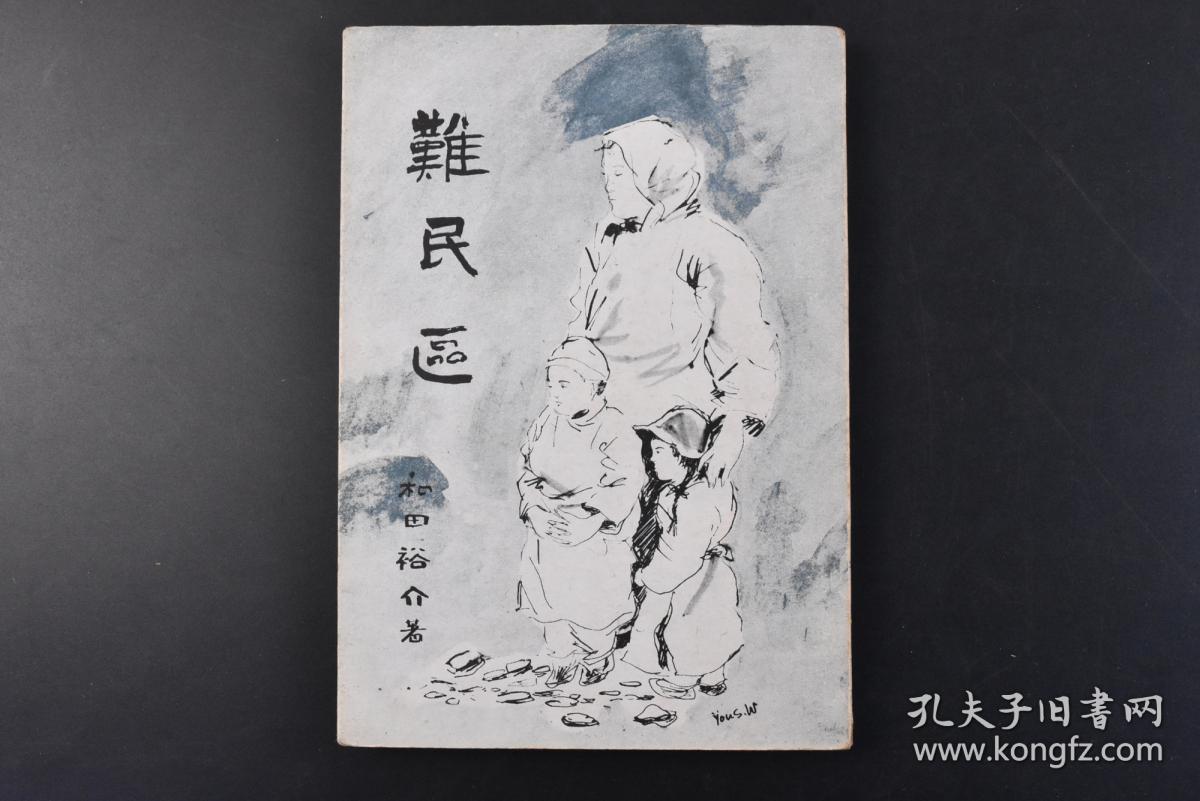 難民區
和田裕介著
YouS.W
孔夫子旧書网
www.kongfz.com